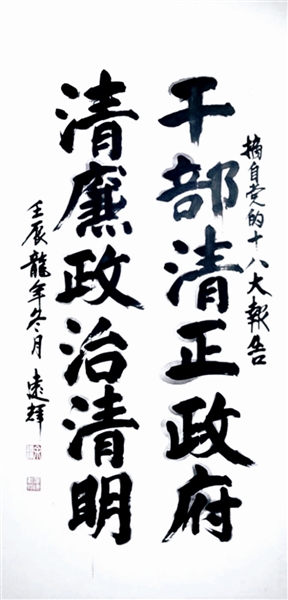 摘自党的十八大報告
干部清正政府
清廉政治清明
壬辰龍年冬月 遠輝